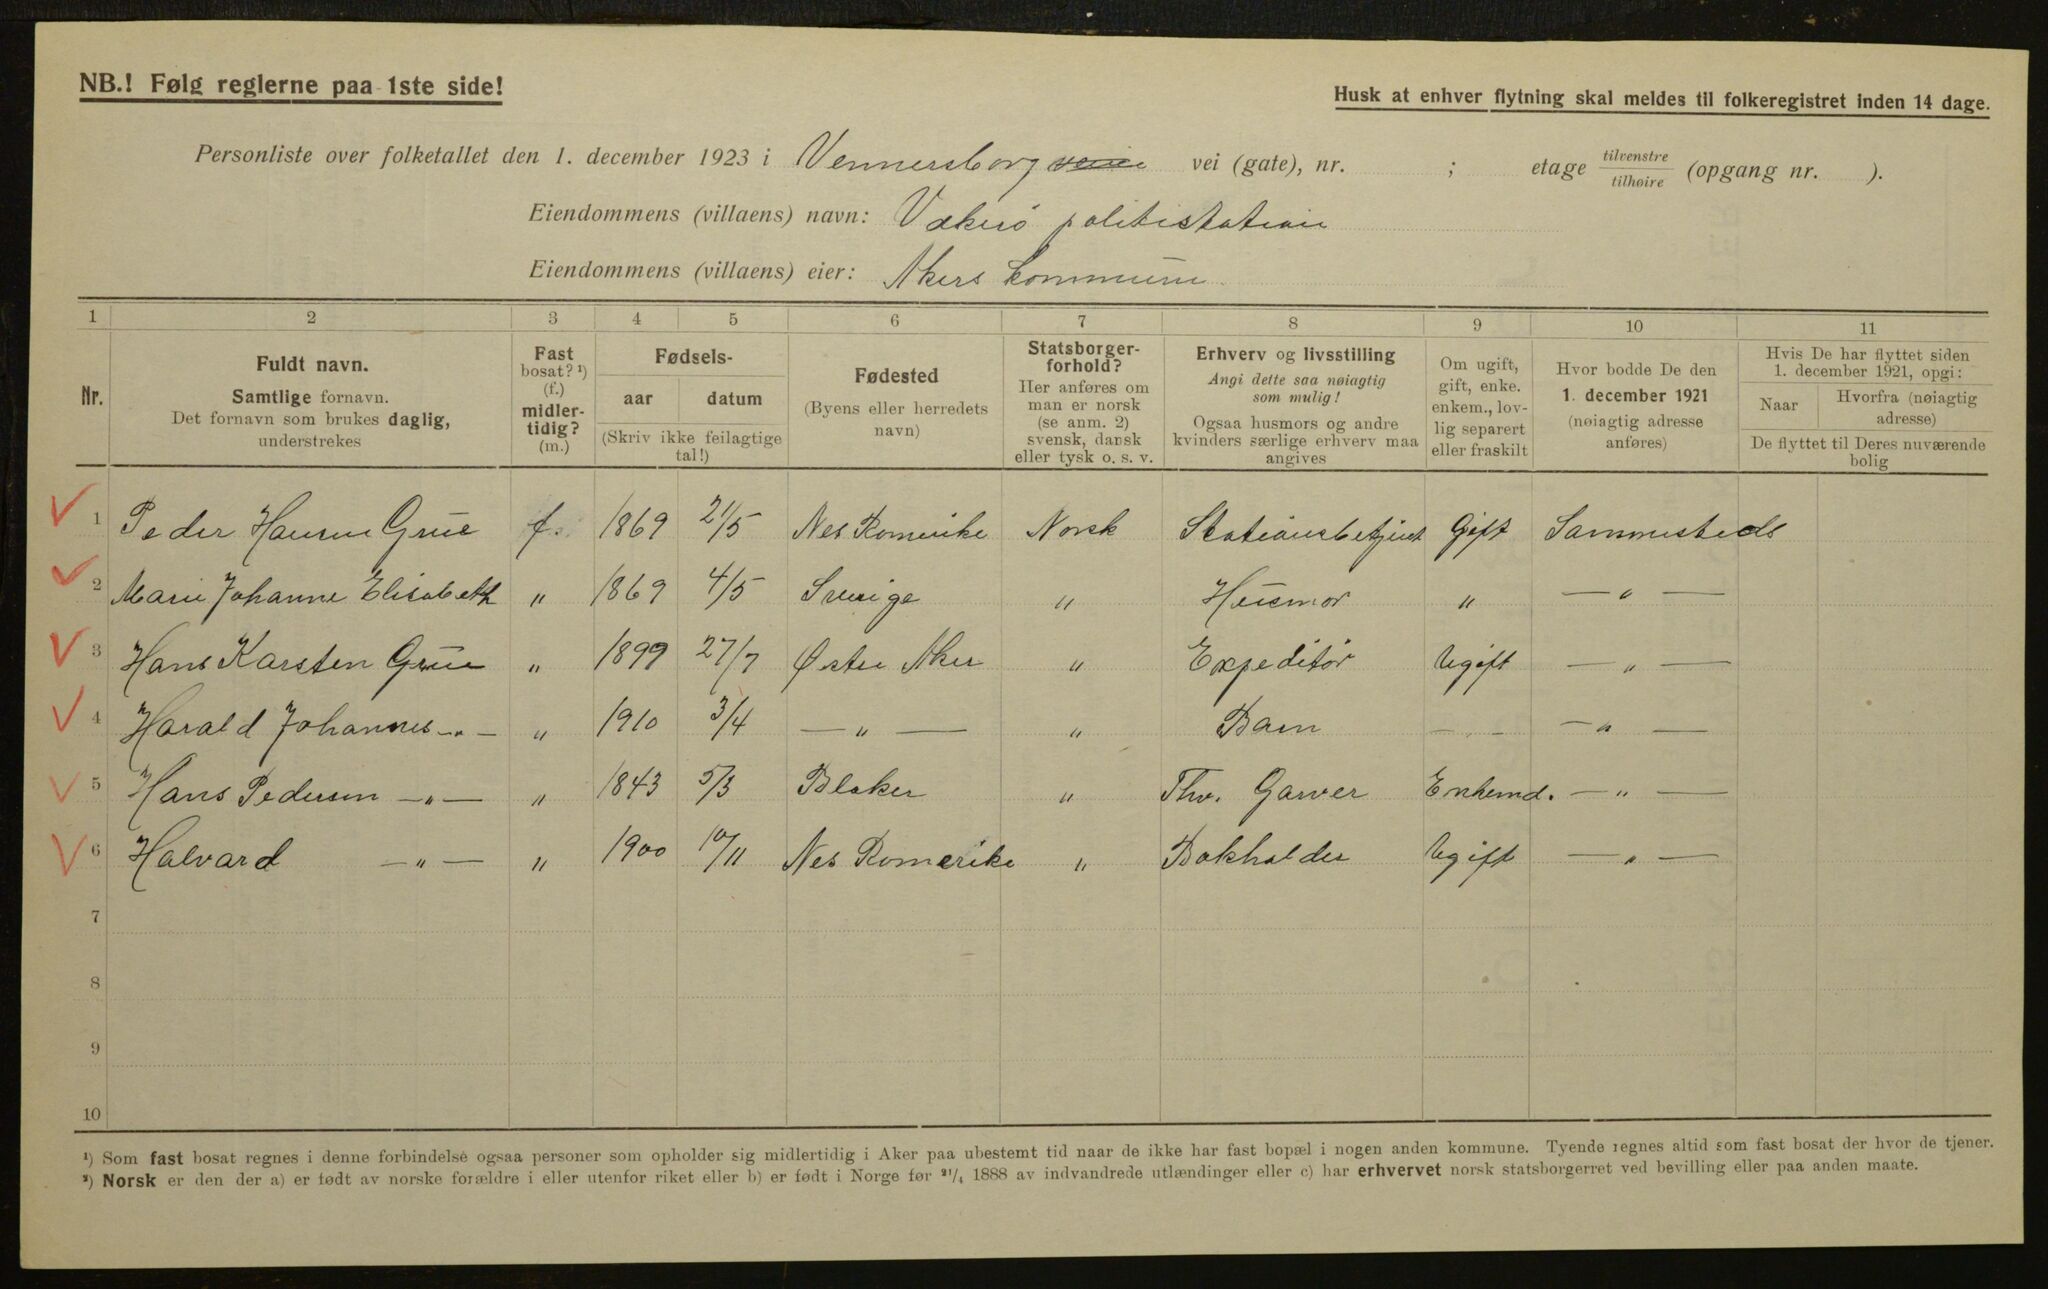 NB.! Følg reglerne paa 1ste side!
Husk at enhver flytning skal meldes til folkeregistret inden 14 dage.
Personliste over folketallet den 1. december 1923 i Vennersborg veien vei (gate), nr. ; etage tilvenstre/tilhøire (opgang nr. ).
Eiendommens (villaens) navn: Vækerö politistation
Eiendommens (villaens) eier: Akers kommune
1 2 3 4 5 6 7 8 9 10 11
Nr.
Fuldt navn.
Samtlige fornavn.
Det fornavn som brukes daglig,
understrekes
Fast
bosat? ¹)
(f.)
midler-
tidig?
(m.)
Fødsels-
aar datum
(Skriv ikke feilagtige
tal!)
Fødested
(Byens eller herredets
navn)
Statsborger-
forhold?
Her anføres om
man er norsk
(se anm. 2)
svensk, dansk
eller tysk o. s. v.
Erhverv og livsstilling
Angi dette saa nøiagtig
som mulig!
Ogsaa husmors og andre
kvinders særlige erhverv maa
angives
Om ugift,
gift, enke.
enkem., lov-
lig separert
eller fraskilt
Hvor bodde De den
1. december 1921
(nøiagtig adresse
anføres)
Hvis De har flyttet siden
1. december 1921, opgi:
Naar Hvorfra (nøiagtig
adresse)
De flyttet til Deres nuværende
bolig
1 Peder Hansen Grue f. 1869 21/5 Nes Romerike Norsk Stationsbetjent Gift Sammesteds
2 Marie Johanne Elisabeth " 1869 4/5 Sverige " Husmor " — " —
3 Hans Karsten Grue " 1899 27/7 Østre Aker " Expeditör Ugift — " —
4 Harald Johannes -"- " 1910 3/4 — " — " Barn - " - — " —
5 Hans Pedersen —"— " 1843 5/3 Blaker " Fhv. Garver Enkemd. — " —
6 Halvard —"— " 1900 10/11 Nes Romerike " Bokholder Ugift — " —
7
8
9
10
¹) Som fast bosat regnes i denne forbindelse ogsaa personer som opholder sig midlertidig i Aker paa ubestemt tid naar de ikke har fast bopæl i nogen anden kommune. Tyende regnes altid som fast bosat der hvor de tjener.
²) Norsk er den der a) er født av norske forældre i eller utenfor riket eller b) er født i Norge før 21/4 1888 av indvandrede utlændinger eller c) har erhvervet norsk statsborgerret ved bevilling eller paa anden maate.